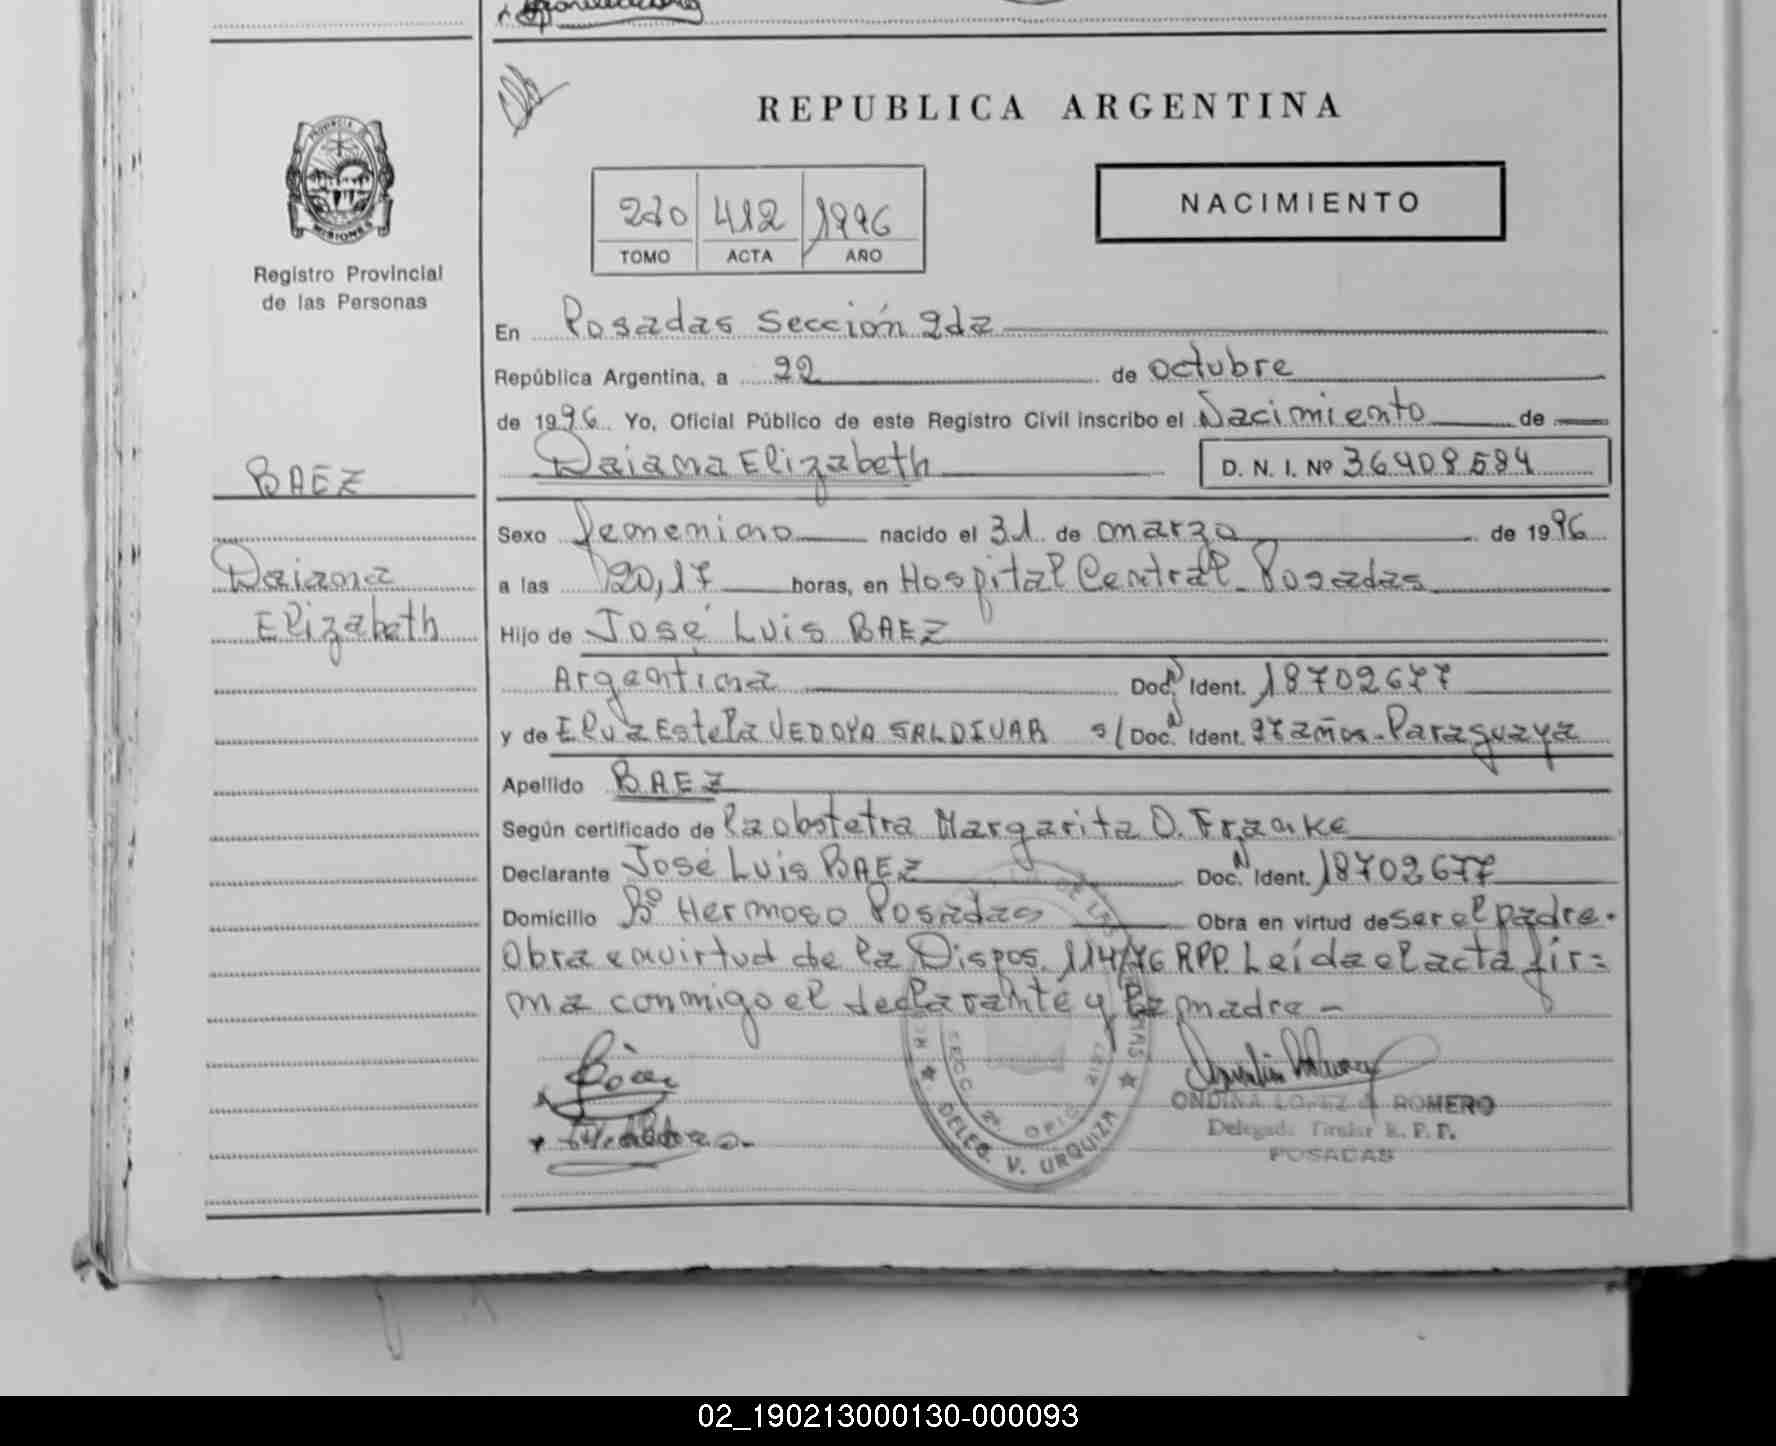 REPUBLICA ARGENTINA
PROVINCIA DE
MISIONES
Registro Provincial
de las Personas
NACIMIENTO
2do 412 1996
TOMO ACTA AÑO
En Posadas Sección 2da
República Argentina, a 22 de octubre
de 1996 Yo, Oficial Público de este Registro Civil inscribo el Nacimiento de
BAEZ
Daiana Elizabeth D. N. I. Nº 36408584
Sexo femenino nacido el 31 de marzo de 1996
Daiana
a las 20,17 horas, en Hospital Central Posadas
Elizabeth
Hijo de José Luis BAEZ
Argentina Doc. Ident. 18702677
y de Elva Estela VEDOYA SALDIVAR s/ Doc. Ident. 27 años - Paraguaya
Apellido BAEZ
Según certificado de la obstetra Margarita O. Franke
Declarante José Luis BAEZ Doc. Ident. 18702677
Domicilio Bº Hermoso Posadas Obra en virtud de ser el padre.
Obra en virtud de la Dispos. 114/76 RPP. Leída el acta fir=
ma conmigo el declarante y la madre -
SECC. 2ª OFIC.
DELEG. V. URQUIZA
ONDINA LOPEZ d ROMERO
Delegada Titular R. P. P.
POSADAS
02_190213000130-000093